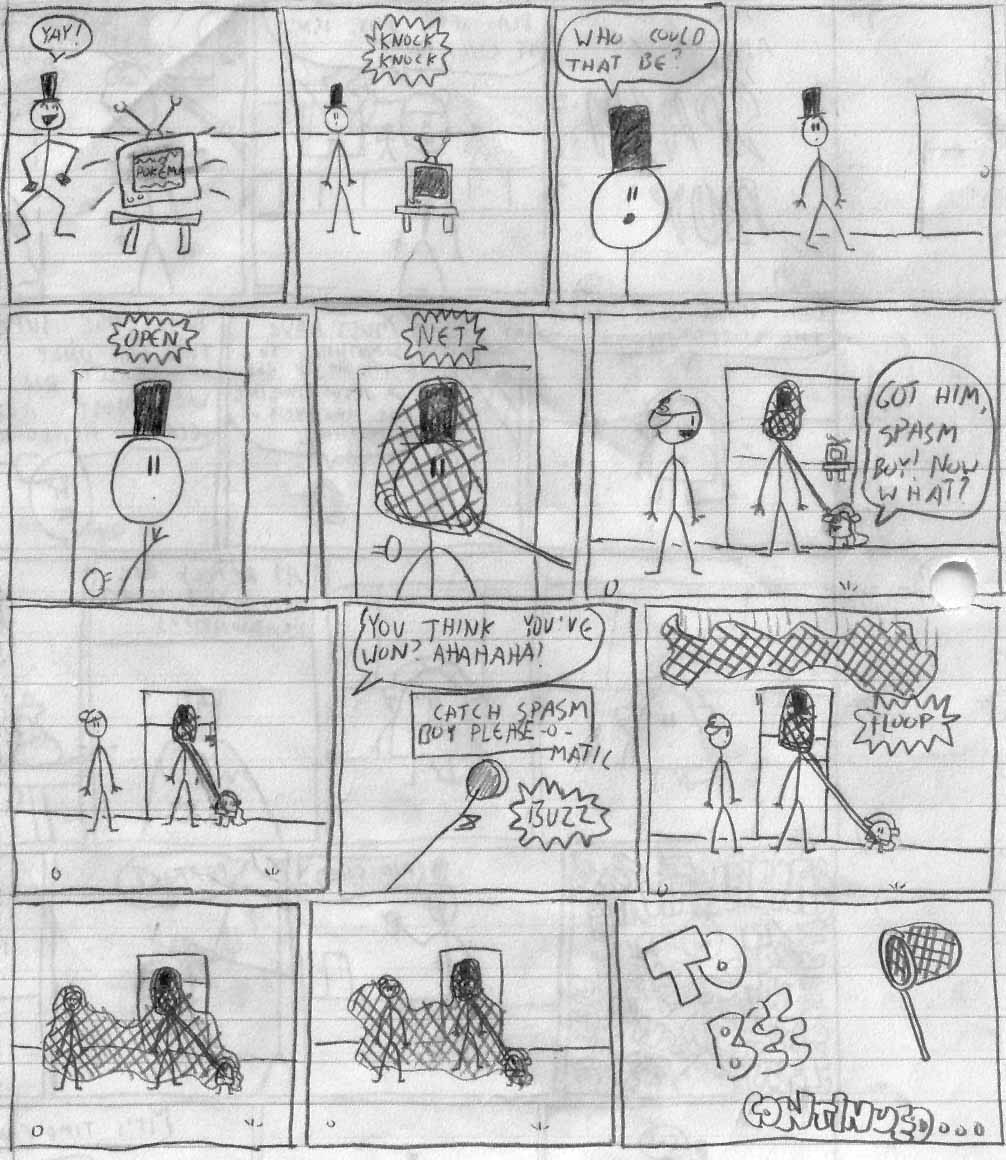 YAY!
POKEM
KNOCK
KNOCK
WHO COULD
THAT BE?
OPEN
NET
GOT HIM,
SPASM
BOY! NOW
WHAT?
YOU THINK YOU'VE
WON? AHAHAHA!
CATCH SPASM
BOY PLEASE-O-
MATIC
BUZZ
FLOOP
TO
BEE
CONTINUED...